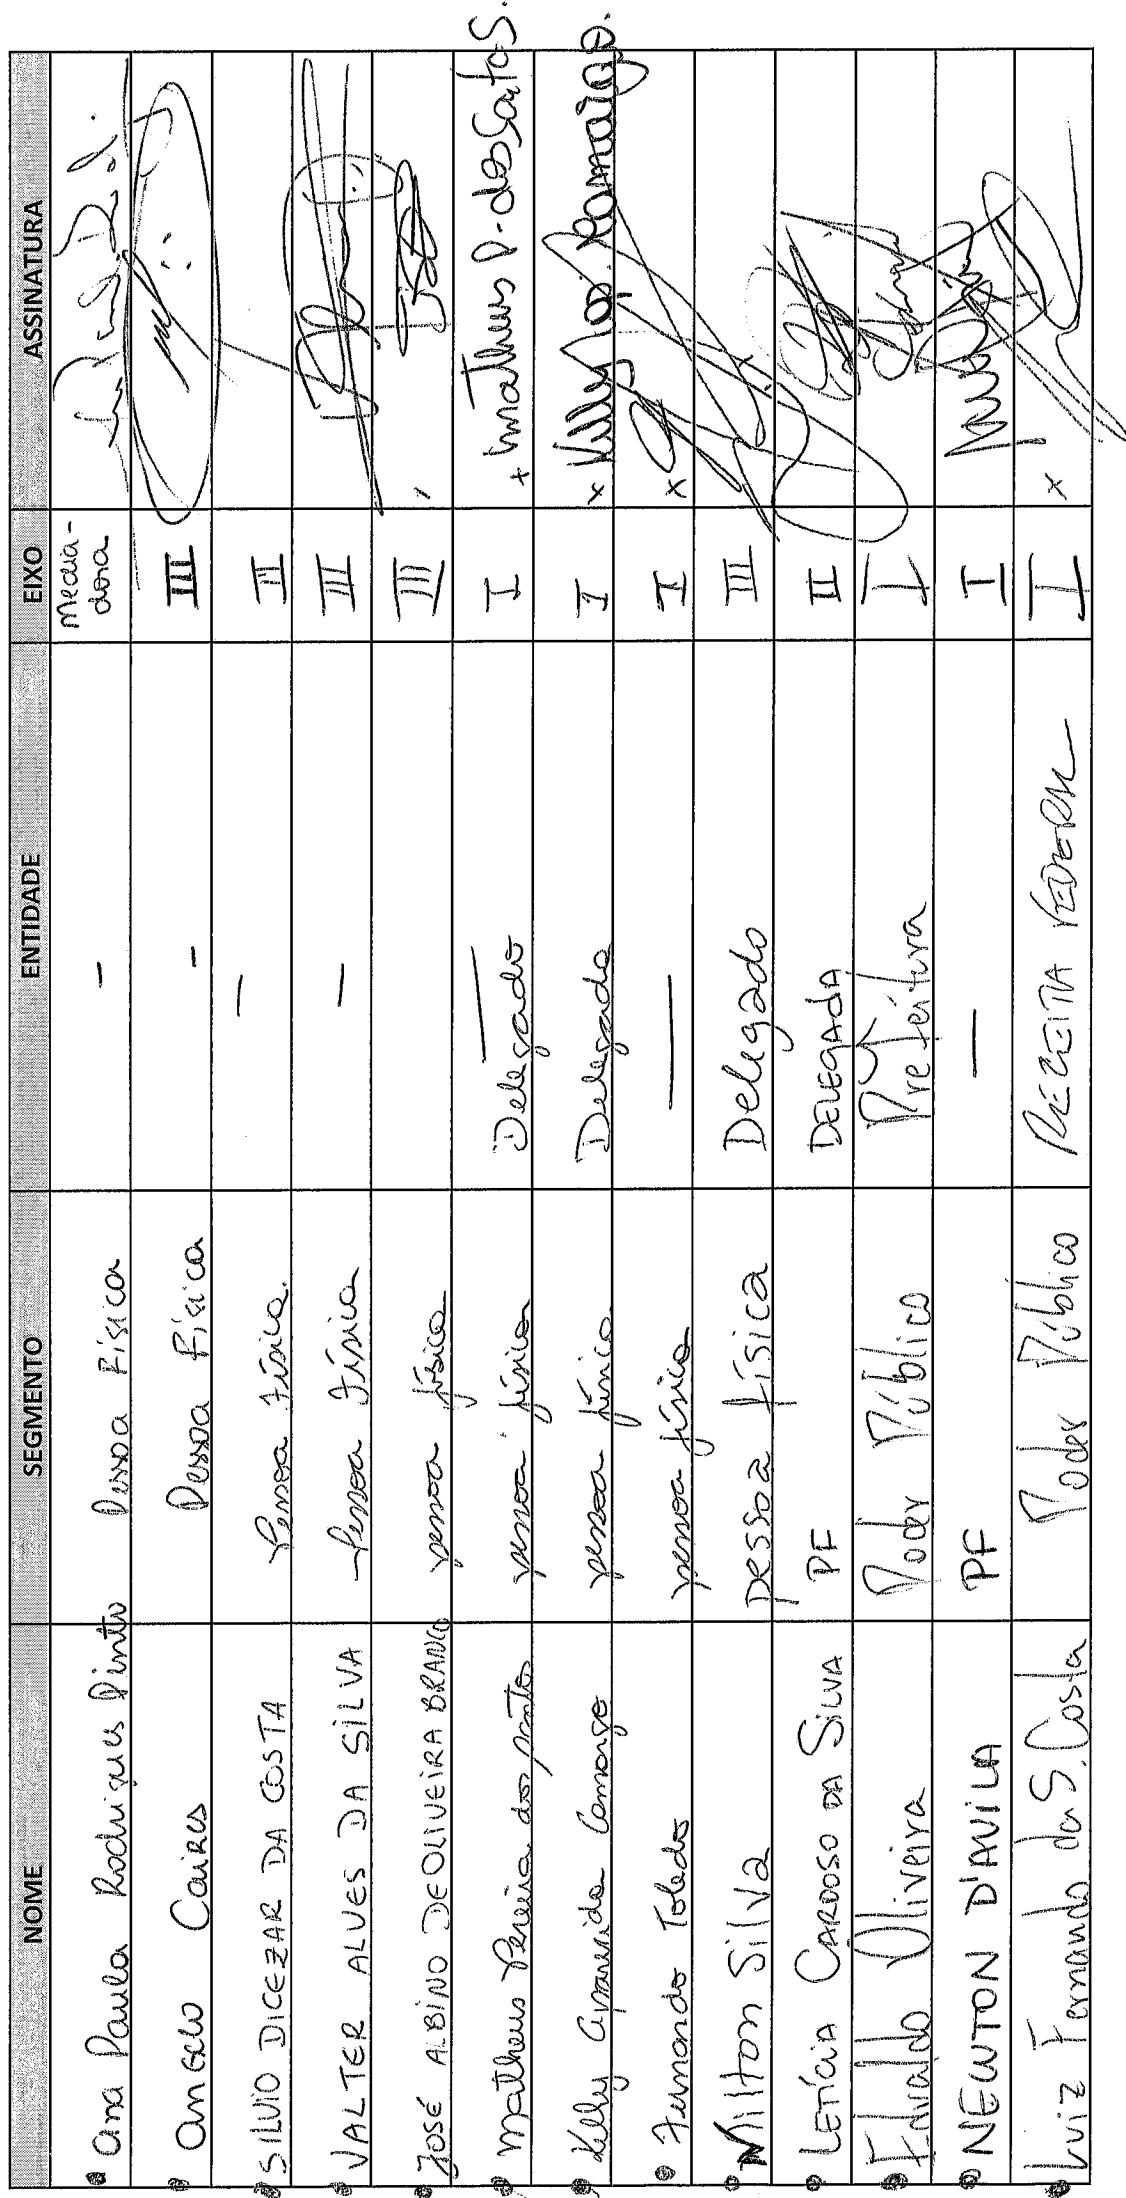 NOME SEGMENTO ENTIDADE EIXO ASSINATURA
Ana Paula Rodrigues Pinto Pessoa Física - Media-
dora
Angelo Caires Pessoa Física - III
SILVIO DICEZAR DA COSTA Pessoa Física - III
VALTER ALVES DA SILVA Pessoa Física - III
JOSÉ ALBINO DE OLIVEIRA BRANCO pessoa física III
Matheus Pereira dos Santos pessoa física Delegado I + Matheus P. dos Santos.
Kelly Aparecida Camargo pessoa física Delegado I x Kelly Ap. Camargo.
Fernando Toledo pessoa física — I x
Milton Silva pessoa física Delegado III
LETÍCIA CARDOSO DA SILVA PF DELEGADA II
Edvaldo Oliveira Poder Público Prefeitura I
NEWTON D'AVILA PF — I
Luiz Fernando da S. Costa Poder Público RECEITA FEDERAL I x